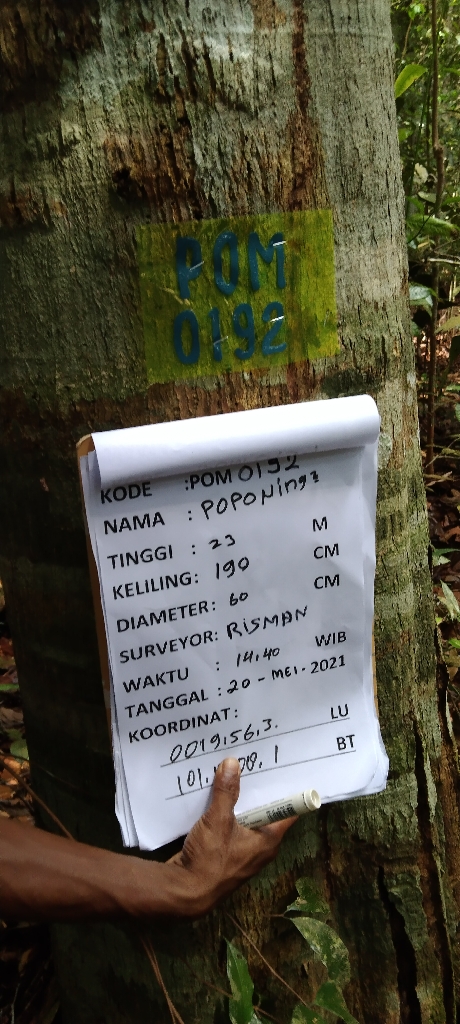 POM
0192
KODE :POM 0192
NAMA : POPONing2
TINGGI : 23 M
KELILING: 190 CM
DIAMETER: 60 CM
SURVEYOR: RISMAN
WAKTU : 14.40 WIB
TANGGAL : 20 - MEI - 2021
KOORDINAT:
0019.56.3. LU
BT